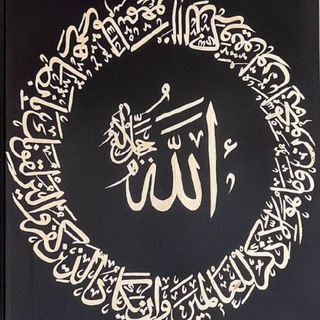 الله
جل جلاله
وإن يكاد الذين كفروا ليزلقونك بأبصارهم لما سمعوا الذكر ويقولون إنه لمجنون وما هو إلا ذكر للعالمين